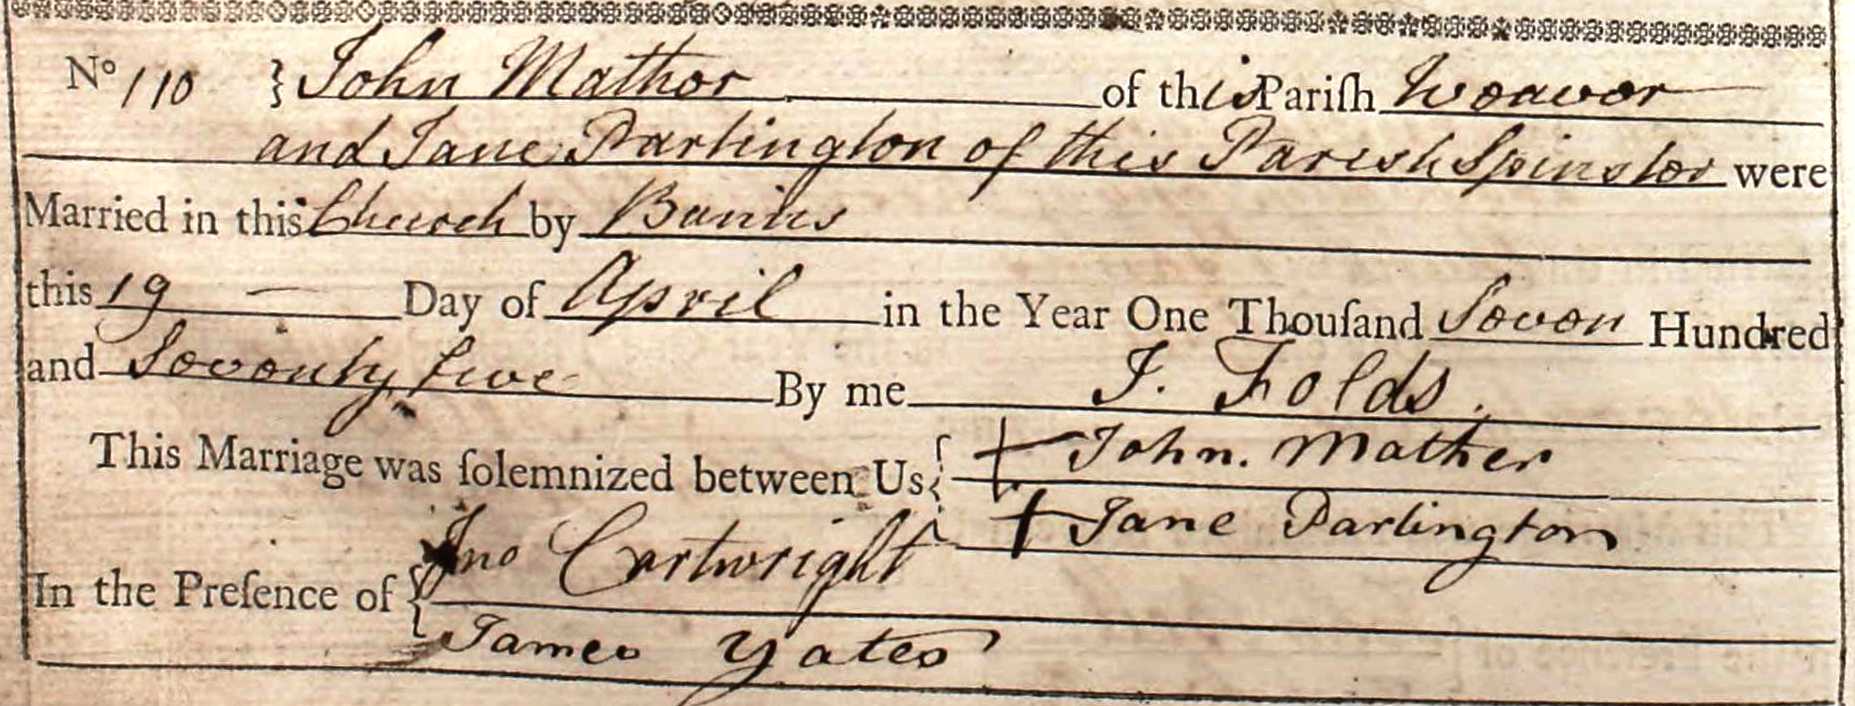 No 110 } John Mather of this Pariſh Weaver
and Jane Partington of this Parish Spinster were
Married in this Church by Banns
this 19 — Day of April in the Year One Thouſand Seven Hundred
and Seventy five By me J. Folds.
This Marriage was ſolemnized between Us { + John. Mather
+ Jane Partington
In the Preſence of { Jno Cartwright
James Yates